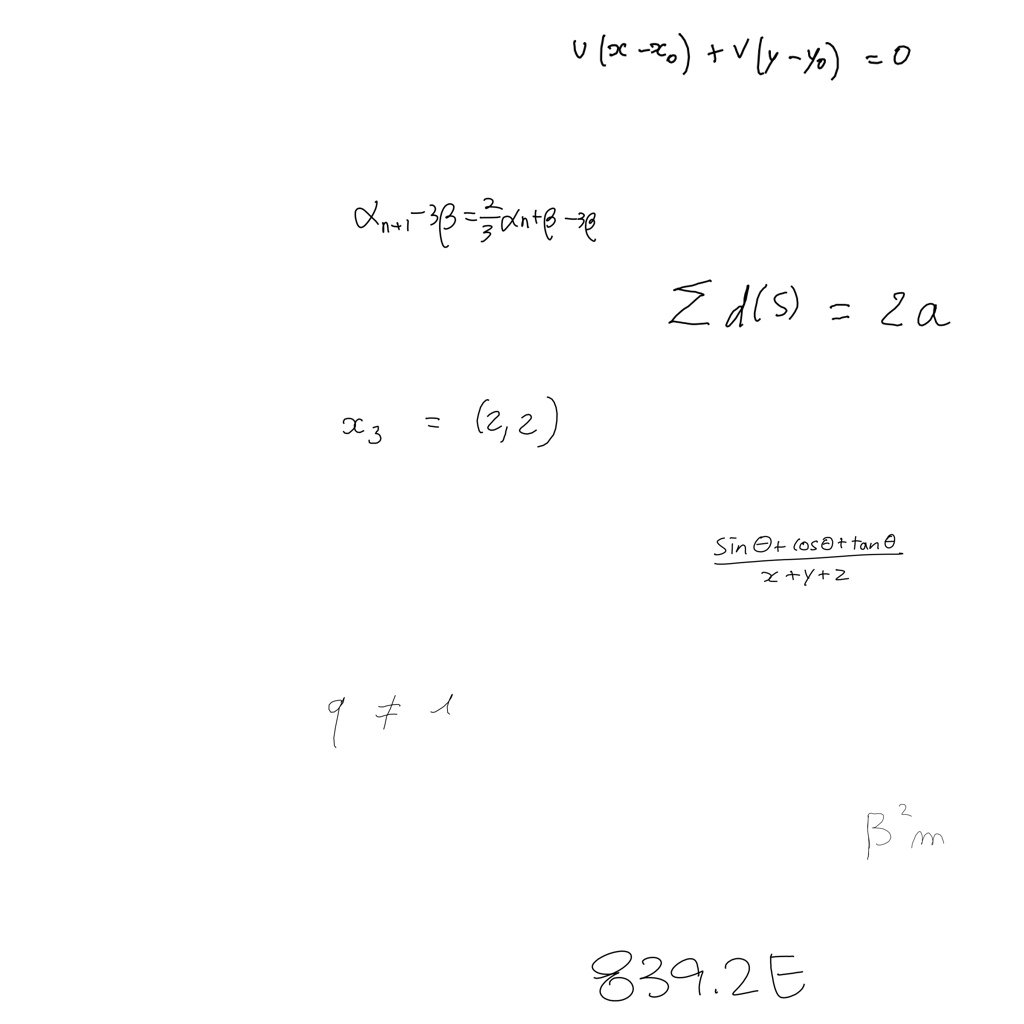 u(x-x₀)+v(y-y₀)=0
αₙ₊₁-3β=2/3αn+β-3β
∑d(s)=2a
x₃=(2,2)
(sinθ+cosθ+tanθ)/(x+y+z)
q≠1
β²m
839.2E